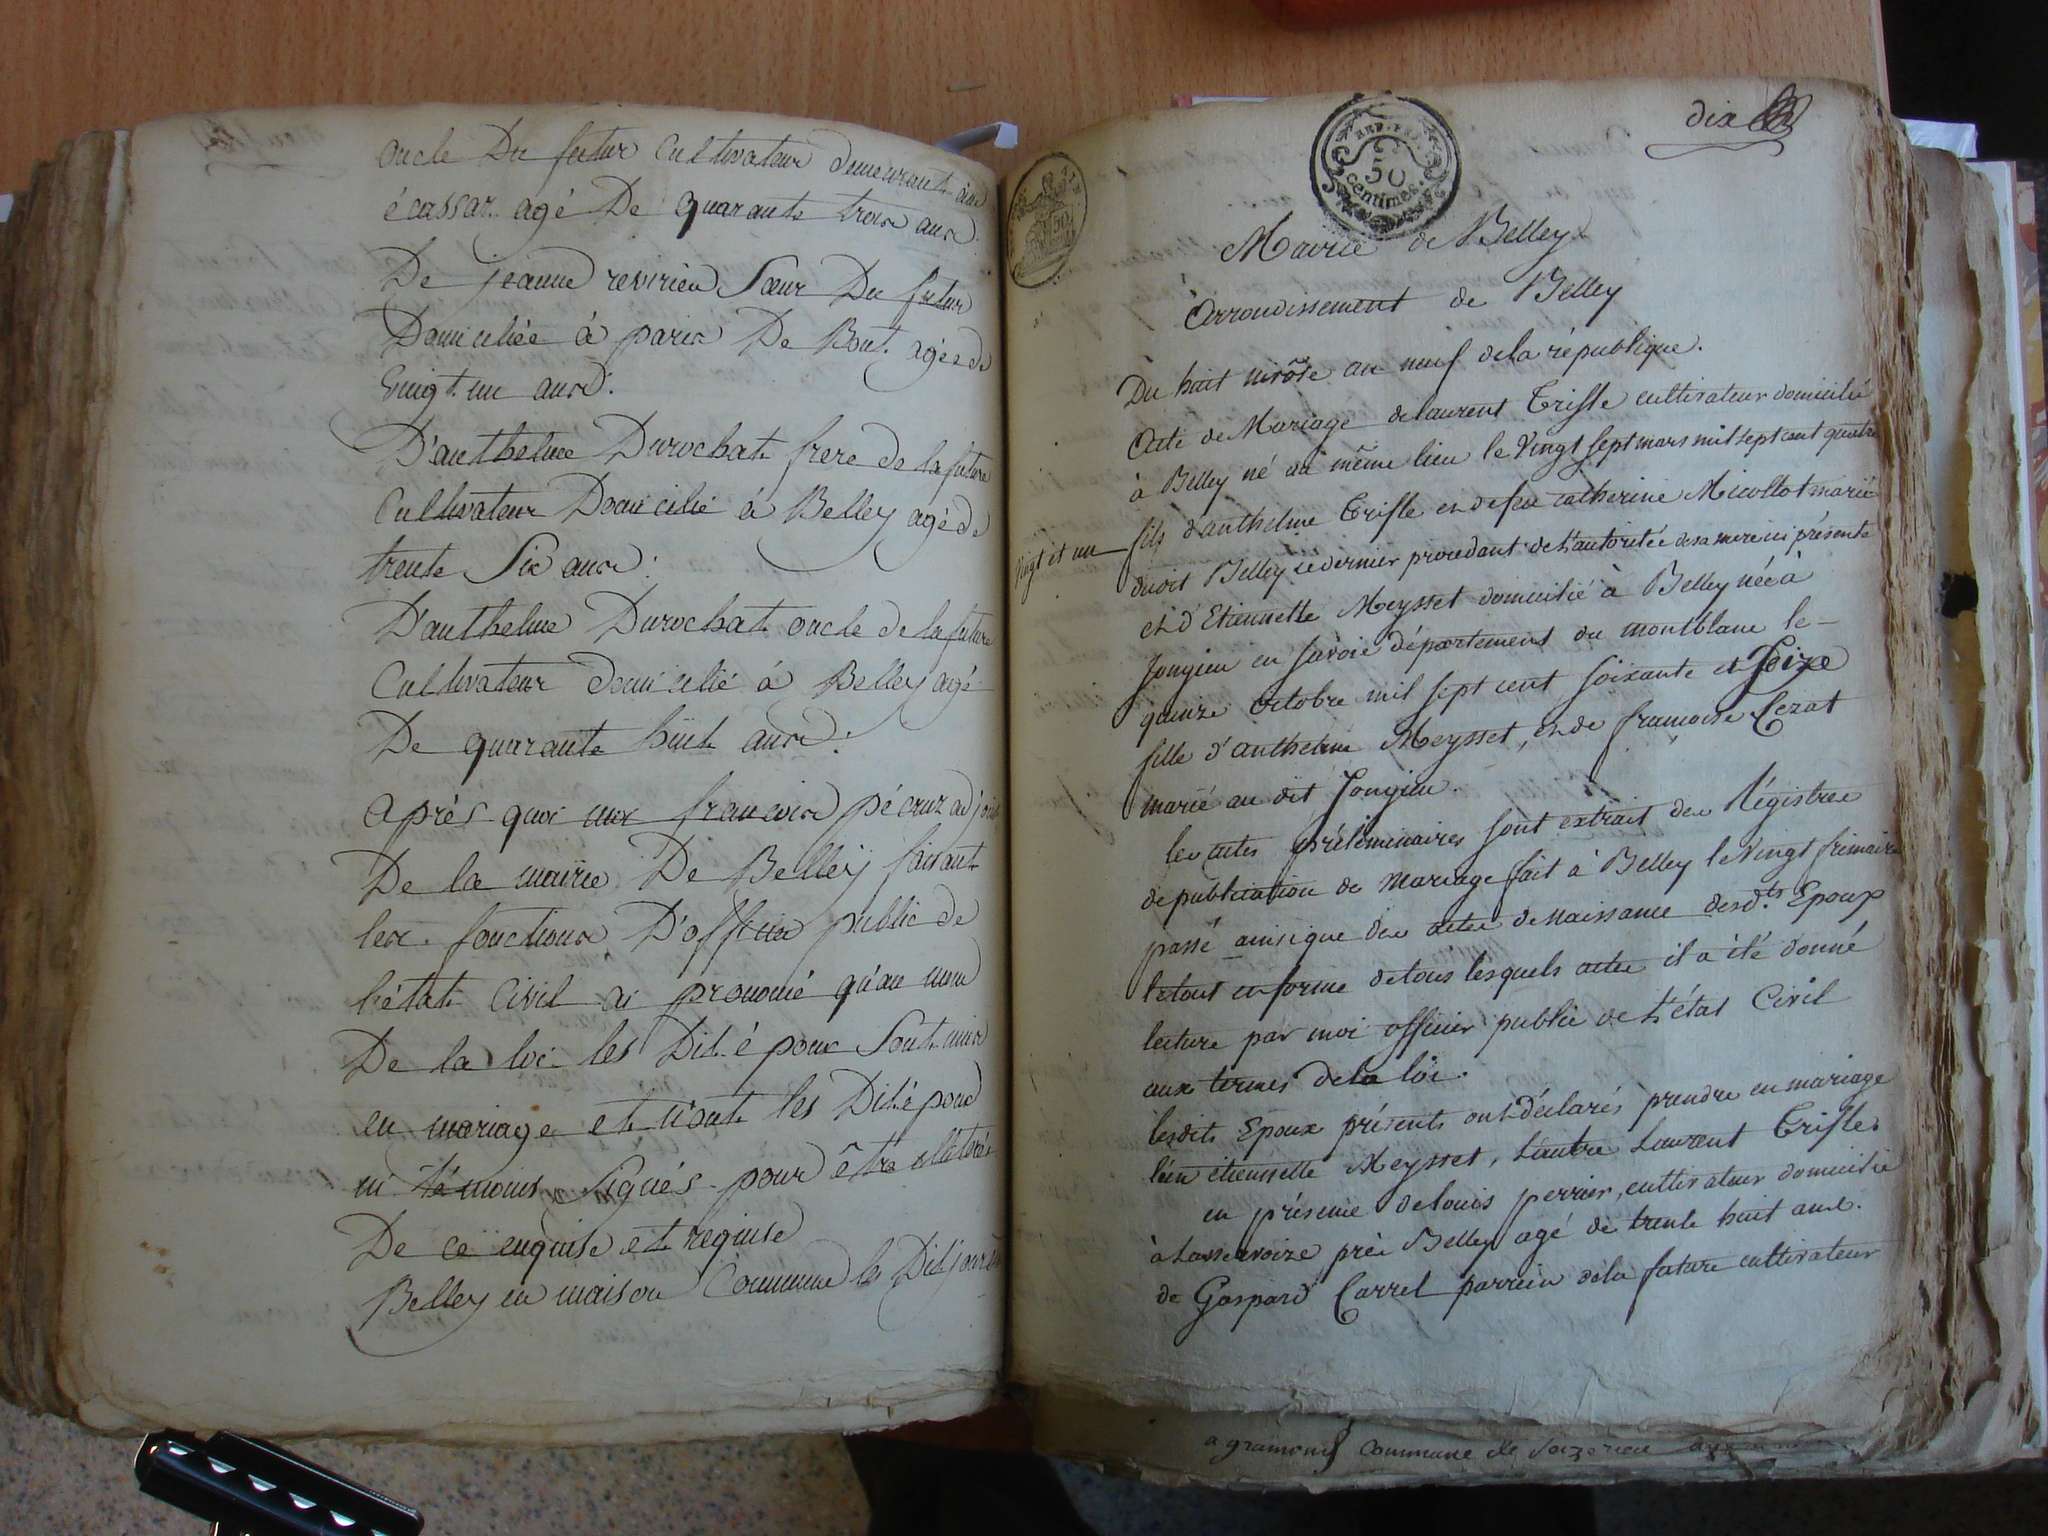 oncle Du futur Cultivateur demeurant
écassar agé De quarante trois ans
De jeanne revirieu Sœur Du futur
Domiciliée à paris De Bout agée de
vingt un ans.
D'anthelme Durochat frere de la future
Cultivateur Domicilié à Belley agé de
trente Six ans.
D'anthelme Durochat oncle de la future
Cultivateur domicilié à Belley agé
De quarante huit ans.
après quoi françois pécruz adjoint
De la mairie De Belley faisant
les fonctions D'officier public de
l'état Civil ai prononcé qu'au nom
De la loi les Dit époux Sont unis
en mariage et n'ont les Dit époux
ni témoins Signés pour être illétrés
De ce enquise et requise
Belley en maison Commune les Dit jour
REP. FRA.
50
centimes.
dix
Mairie de Belley
Arrondissement de Belley
Du huit nivôse an neuf dela république.
Acte de Mariage delaurent Triffle cultivateur domicilié
à Belley né au même lieu le vingt sept mars mil sept cent quatre
vingt et un
fils d'anthelme Triffle et defeu catherine Micollot marié
dudit Belley ce dernier procedant de l'autoritée desa mere ici présente
et d'Etiennette Meysset domicilié à Belley née à
Jongieu en savoie département du montblanc le
quinze octobre mil sept cent soixante et seize
fille d'anthelme Meysset, et de françoise Cezat
marié au dit Jongieu.
les actes préléminaires sont extrait des Régistre
de publication de Mariage fait à Belley le vingt frimaire
passé ainsique des actes de naissance desdts Epoux
letout en forme detous lesquels actes il à été donné
lecture par moi officier public de l'état Civil
aux termes dela loi.
lesdits Epoux présents ont déclarés prendre en mariage
l'un étiennette Meysset, L'autre Laurent Triffle.
en présence delouis perrier, cultivateur domicilié
à près Belley agé de trente huit ans.
de Gaspard Carrel parrein dela future cultivateur
a gramont commune de